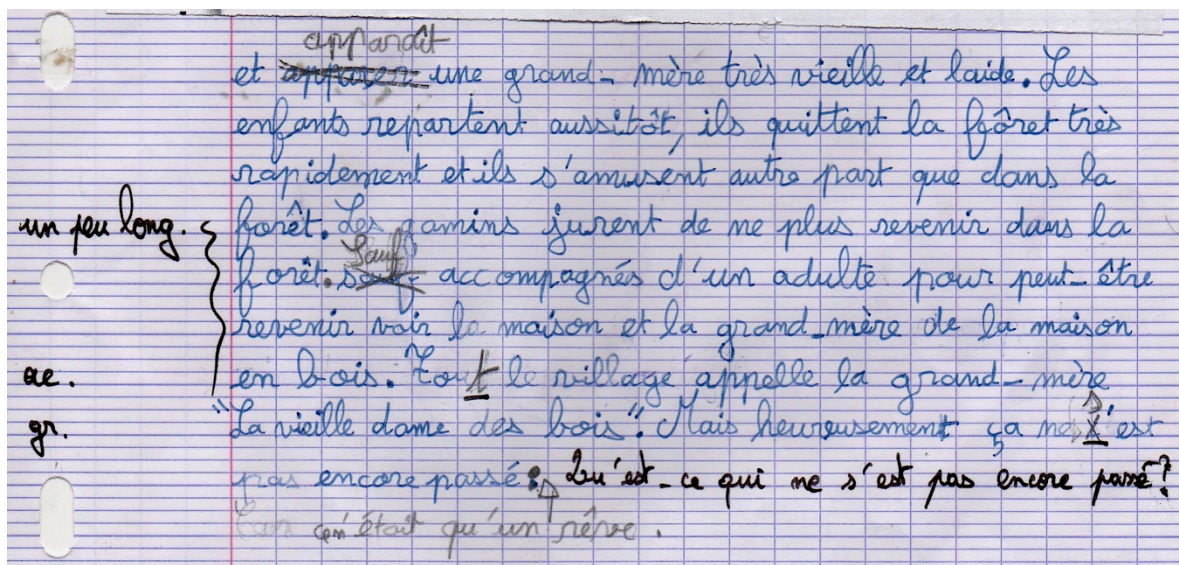 apparaît
et apparer une grand-mère très vieille et laide. Les
enfants repartent aussitôt, ils quittent la fôret très
rapidement et ils s'amusent autre part que dans la
un peu long. forêt. Les gamins jurent de ne plus revenir dans la
Sauf
forêt. sauf accompagnés d'un adulte pour peut-être
revenir voir la maison et la grand-mère de la maison
ac. en bois. Tout le village appelle la grand-mère
s
gr. "La vieille dame des bois". Mais heureusement ça ne s'est
pas encore passé. Qu'est-ce qui ne s'est pas encore passé?
Car ce n'était qu'un rêve.